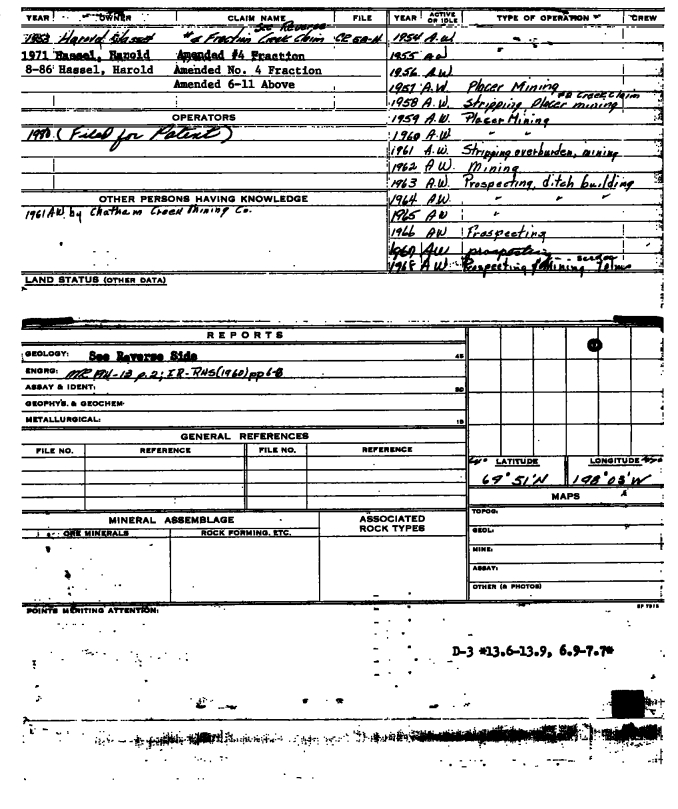 YEAR OWNER CLAIM NAME FILE YEAR ACTIVE OR IDLE TYPE OF OPERATION CREW
See Reverse
1953 Harold Fraction Creek Claim 1954 A.W.
1971 Hassel, Harold Amended #4 Fraction 1955 AW
8-86 Hassel, Harold Amended No. 4 Fraction 1956 A.W.
Amended 6-11 Above 1957 A.W. Placer Mining
Creek Claim
1958 A.W. Stripping Placer mining
OPERATORS 1959 A.W. Placer Mining
1990 (Filed for Patent) 1960 A.W. " "
1961 A.W. Stripping overburden, mining
1962 A.W. Mining
1963 A.W. Prospecting, ditch building
OTHER PERSONS HAVING KNOWLEDGE 1964 A.W. " " "
1961 AW by Chatham Creek Mining Co. 1965 AW "
1966 AW Prospecting
AW prospecting
1968 A W Prospecting & Mining
LAND STATUS (OTHER DATA)
REPORTS
GEOLOGY: See Reverse Side 45
ENGRG: p.2; IR-RNS(1960) pp 6-8
ASSAY & IDENT: 30
GEOPHYS. & GEOCHEM:
METALLURGICAL: 15
GENERAL REFERENCES
FILE NO. REFERENCE FILE NO. REFERENCE
LATITUDE LONGITUDE
51'N 03'W
MAPS
MINERAL ASSEMBLAGE ASSOCIATED ROCK TYPES TOPOG.
ORE MINERALS ROCK FORMING, ETC. GEOL:
MINE:
ASSAY:
OTHER (& PHOTOS)
POINTS MERITING ATTENTION:
D-3 *13.6-13.9, 6.9-7.7*